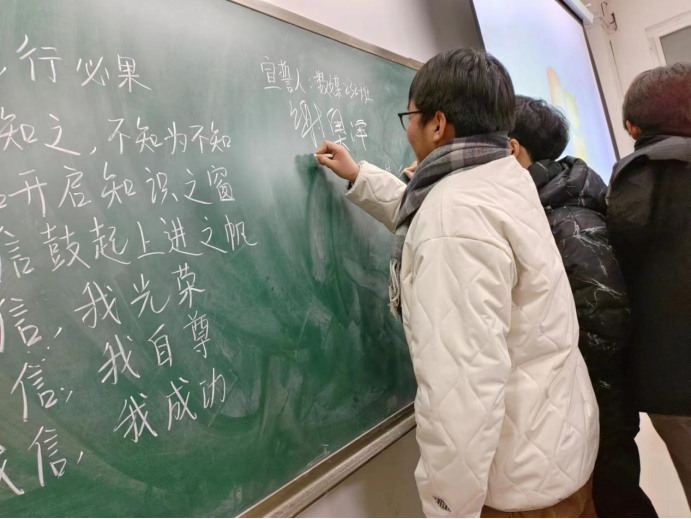 行必果
知之,不知为不知
开启知识之窗
信鼓起上进之帆
信,我光荣
信,我自尊
信,我成功
宣誓人:数媒252班
集泽